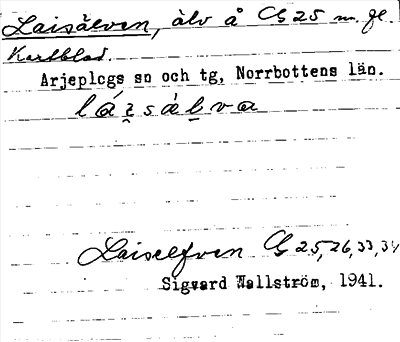 Laisälven, älv å G 25 m. fl.
Kartblad.
Arjeplogs sn och tg, Norrbottens län.
lá̱i̯sàl̬va
Laiselfven G 25, 26, 33, 34
Sigvard Wallström, 1941.